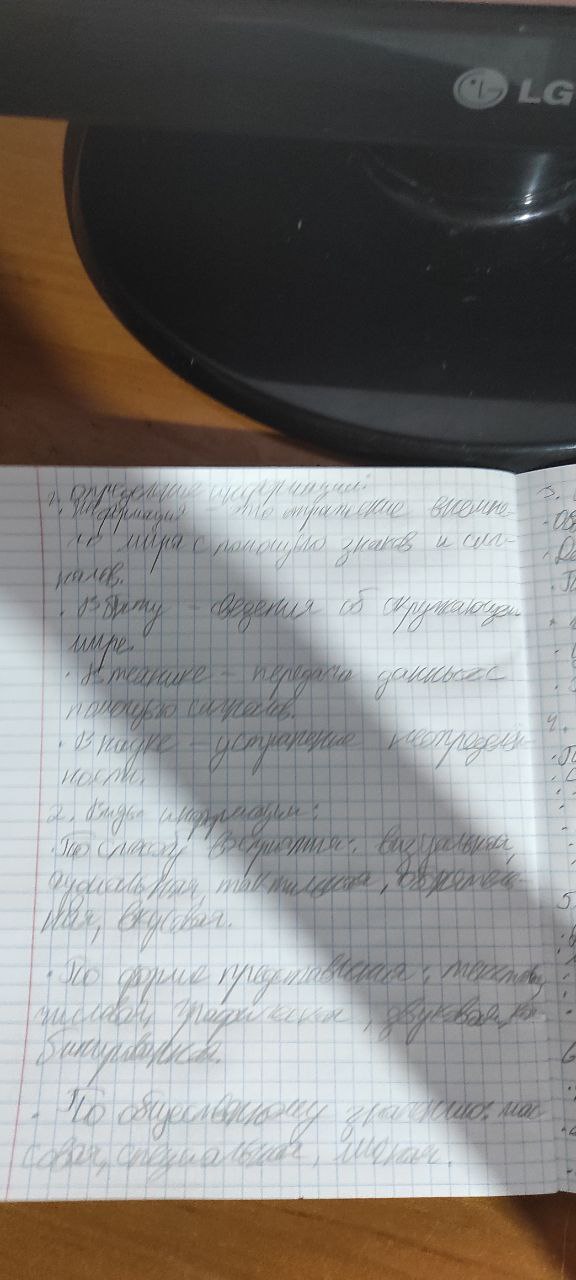 LG
1. Определение информации:
· Информация это отражение внешне-
го мира с помощью знаков и сиг-
налов.
· В быту – сведения об окружающем
мире.
· В технике – передача данных с
помощью сигналов.
· В науке – устранение неопределён-
ности.
2. Виды информации:
· По способу восприятия: визуальная,
аудиальная, тактильная, обонятель-
ная, вкусовая.
· По форме представления: текстовая,
числовая, графическая, звуковая,
· По общественному значению: мас-
совая, специальная, личная.
3.
4.
5.
6